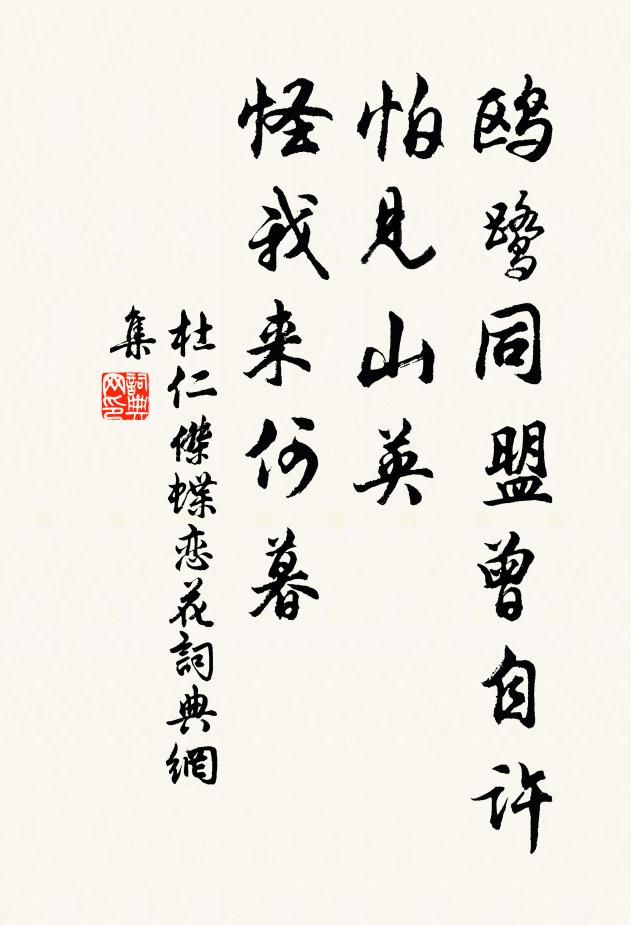 鸥鹭同盟曾自许
怕见山英
怪我来何暮
杜仁傑蝶恋花詞典網
集
詞典网印